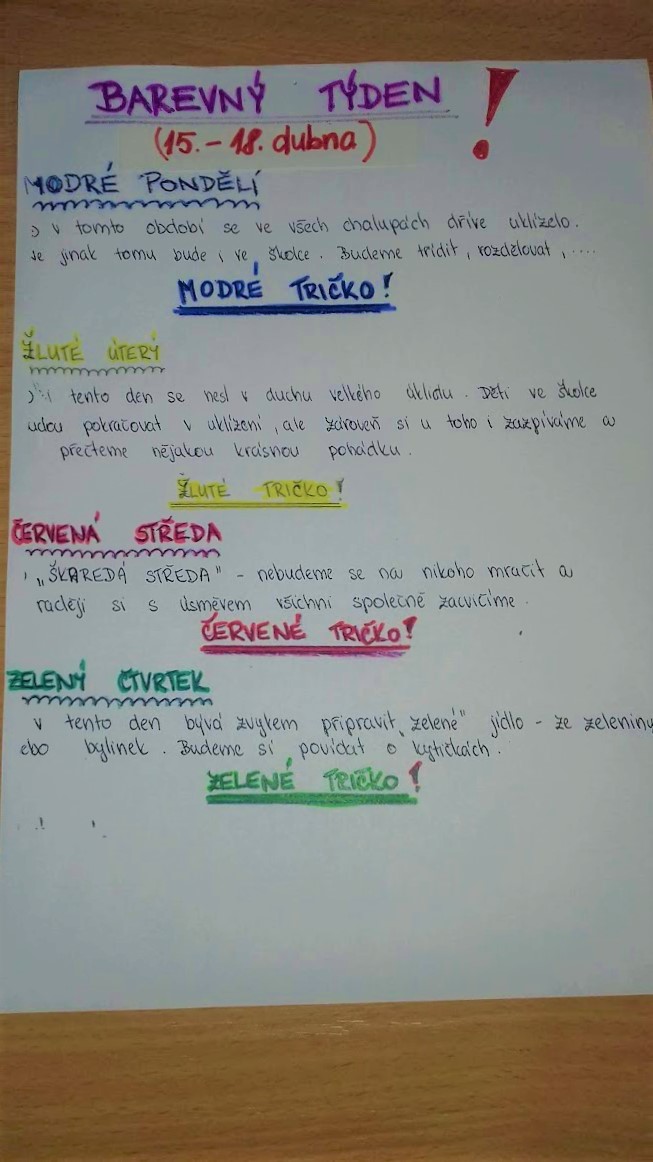 BAREVNÝ TÝDEN !
(15. – 18. dubna)
MODRÉ PONDĚLÍ
v tomto období se ve všech chalupách dříve uklízelo.
jinak tomu bude i ve školce. Budeme třídit, rozdělovat, ....
MODRÉ TRIČKO!
ŽLUTÉ ÚTERÝ
tento den se nesl v duchu velkého úklidu. Děti ve školce
udou pokračovat v uklízení, ale zároveň si u toho i zazpíváme a
přečteme nějakou krásnou pohádku.
ŽLUTÉ TRIČKO!
ČERVENÁ STŘEDA
„ŠKAREDÁ STŘEDA" – nebudeme se na nikoho mračit a
raději si s úsměvem všichni společně zacvičíme.
ČERVENÉ TRIČKO!
ZELENÝ ČTVRTEK
v tento den bývá zvykem připravit „zelené" jídlo – ze zeleniny
ebo bylinek. Budeme si povídat o kytičkách.
ZELENÉ TRIČKO!